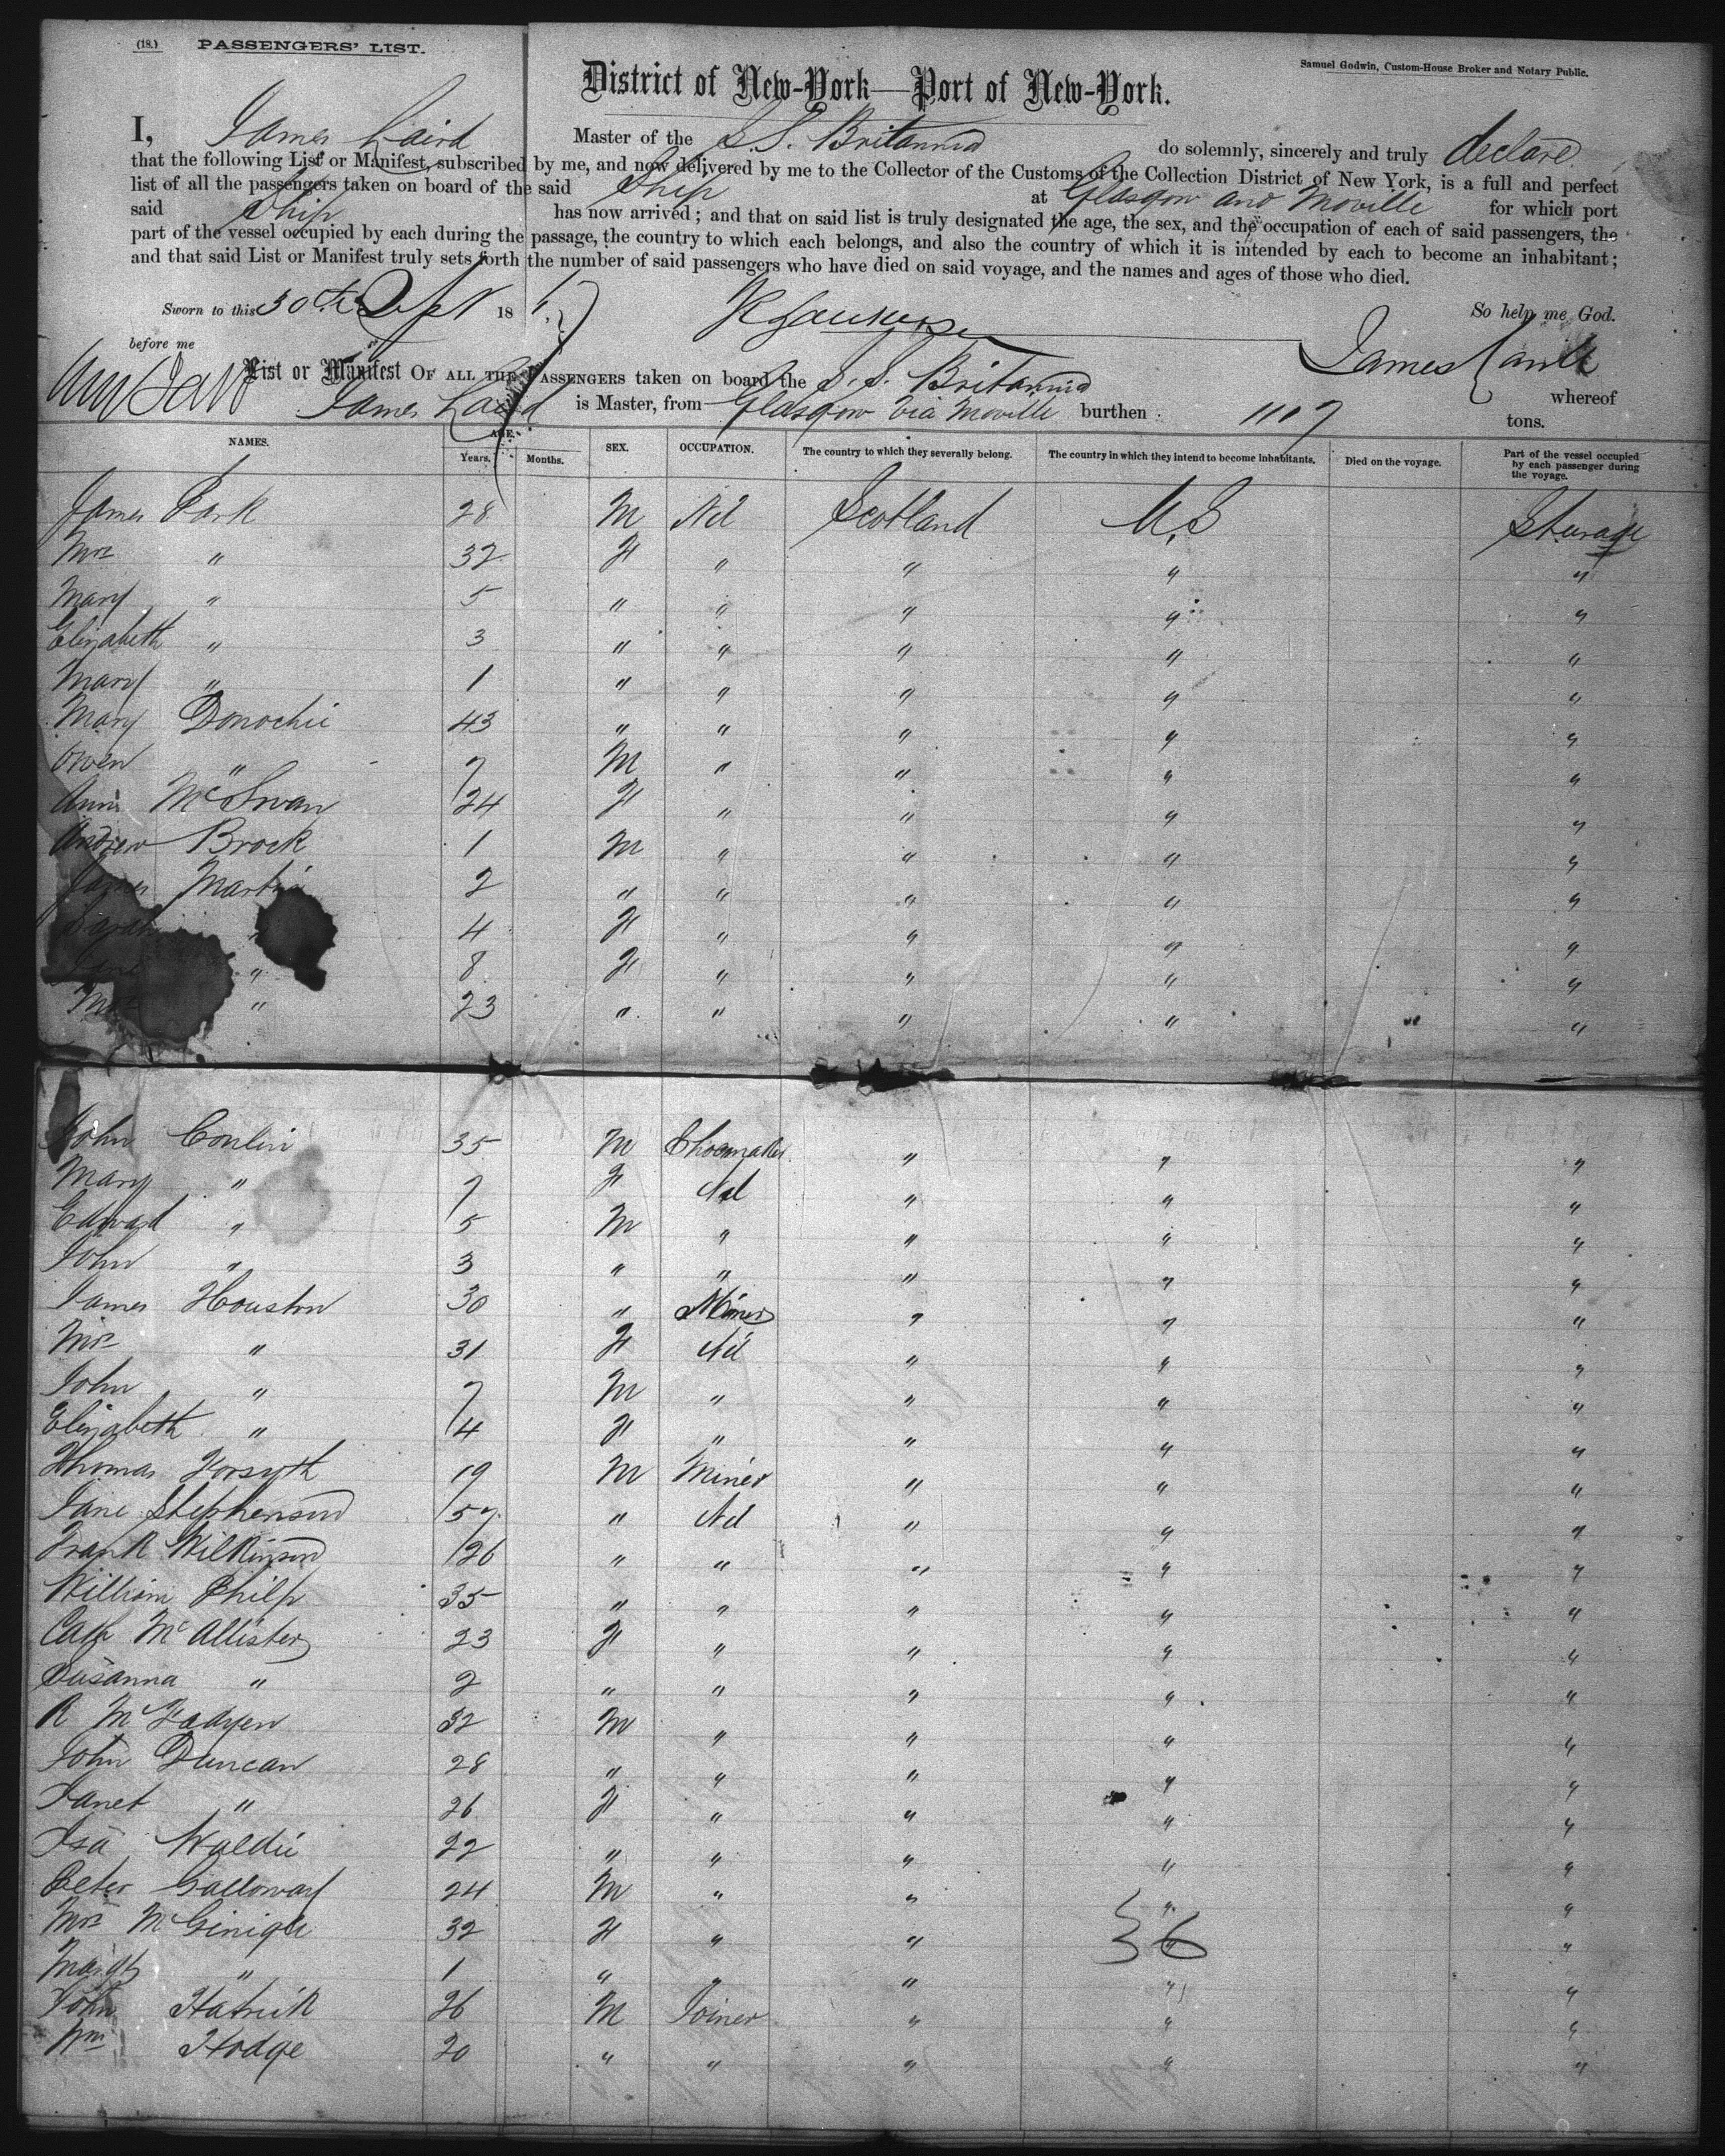 (18.) PASSENGERS' LIST.
Samuel Godwin, Custom-House Broker and Notary Public.
District of New-York—Port of New-York.
I, James Laird Master of the S.S. Britannia do solemnly, sincerely and truly declare
that the following List or Manifest, subscribed by me, and now delivered by me to the Collector of the Customs of the Collection District of New York, is a full and perfect
list of all the passengers taken on board of the said Ship at Glasgow and Moville for which port
said Ship has now arrived; and that on said list is truly designated the age, the sex, and the occupation of each of said passengers, the
part of the vessel occupied by each during the passage, the country to which each belongs, and also the country of which it is intended by each to become an inhabitant;
and that said List or Manifest truly sets forth the number of said passengers who have died on said voyage, and the names and ages of those who died.
Sworn to this 30th Sept 18 So help me God.
before me James Laird
List or Manifest OF ALL THE PASSENGERS taken on board the S.S. Britannia whereof
James Laird is Master, from Glasgow via Moville burthen 1107 tons.
NAMES. AGE. Years. Months. SEX. OCCUPATION. The country to which they severally belong. The country in which they intend to become inhabitants. Died on the voyage. Part of the vessel occupied by each passenger during the voyage.
James Park 28 M Nil Scotland U.S Sturage
Mrs " 32 F " " " "
Mary " 5 " " " " "
Elizabeth " 3 " " " " "
Mary " 1 " " " " "
Mary Donochie 43 " " " " "
Owen " 7 M " " " "
Annie McSwan 24 F " " " "
Andrew Brock 1 M " " " "
James Martin 2 " " " " "
Sarah " 4 F " " " "
Jane " 8 F " " " "
Mrs " 23 " " " " "
John Conlin 35 M Shoemaker " " "
Mary " 7 F Nil " " "
Edward " 5 M " " " "
John " 3 " " " " "
James Houston 30 " Miner " " "
Mrs " 31 F Nil " " "
John " 7 M " " " "
Elizabeth " 4 F " " " "
Thomas Forsyth 19 M Miner " " "
Jane Stephenson 57 " Nil " " "
Frank Wilkinson 26 " " " " "
William Philp 35 " " " " "
Cath McAllister 23 F " " " "
Susanna " 2 " " " " "
A McFadyen 32 M " " " "
John Duncan 28 " " " " "
Janet " 26 F " " " "
Isa Waldie 22 " " " " "
Peter Galloway 24 M " " " "
Mrs McGinigle 32 F " " " "
36
Maigt " 1 " " " " "
John Hatrick 26 M Joiner " " "
Wm Hodge 20 " " " " "